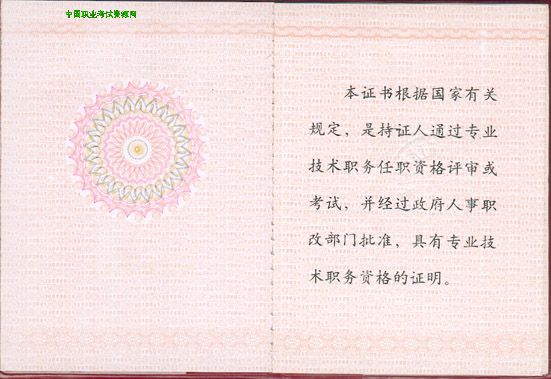 中国职业考试资源网
本证书根据国家有关
规定，是持证人通过专业
技术职务任职资格评审或
考试，并经过政府人事职
改部门批准，具有专业技
术职务资格的证明。